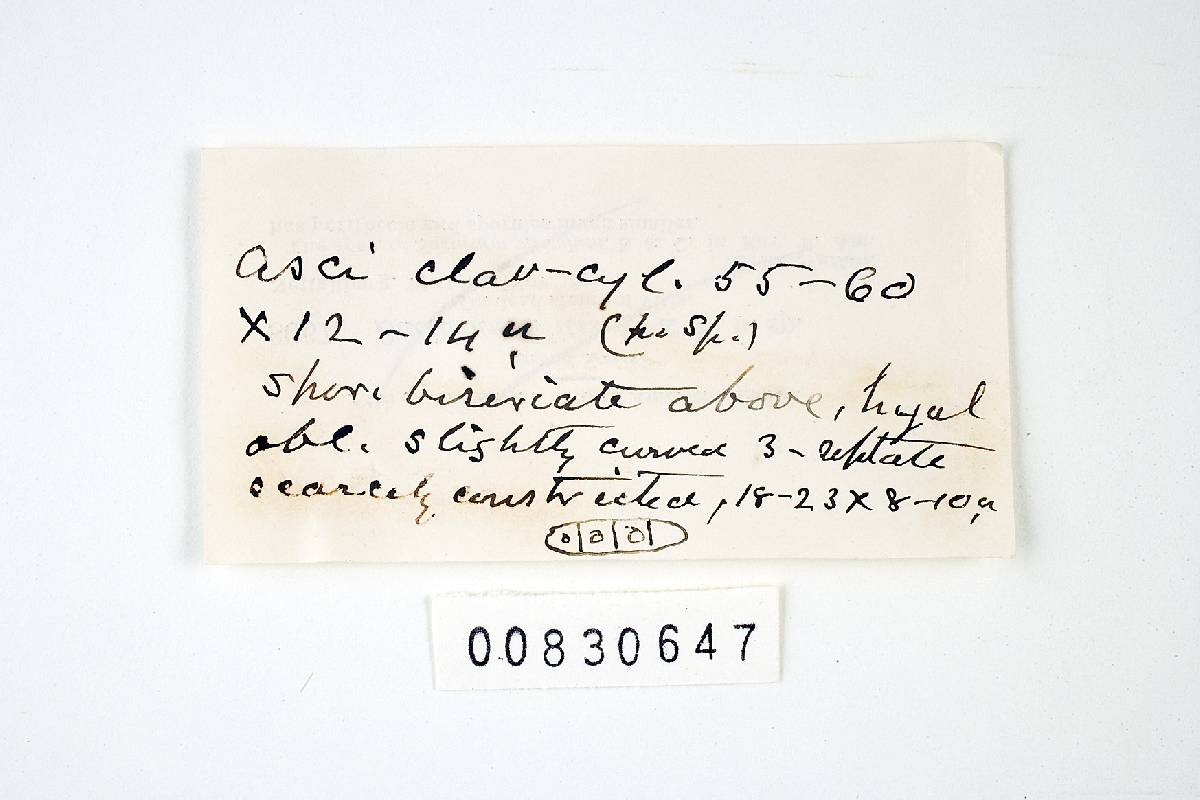 Asci clav-cyl. 55-60
X 12-14 µ (p. sp.)
Spor. biseriate above, hyal
obl. slightly curved 3-septate
scarcely constricted, 18-23 X 8-10 µ
00830647